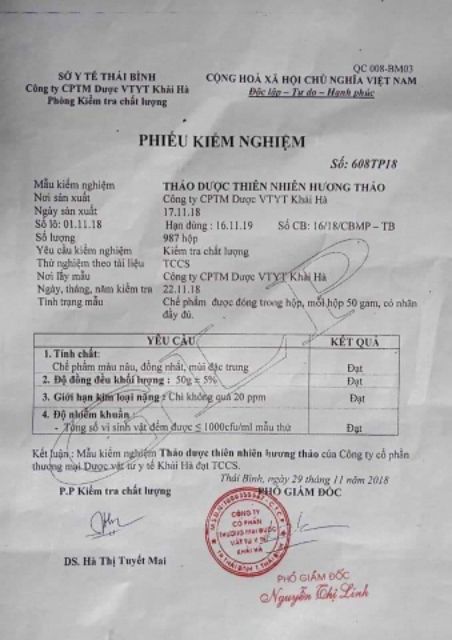 QC 008-BM03
SỞ Y TẾ THÁI BÌNH
Công ty CPTM Dược VTYT Khải Hà
Phòng Kiểm tra chất lượng
CỘNG HOÀ XÃ HỘI CHỦ NGHĨA VIỆT NAM
Độc lập – Tự do – Hạnh phúc
PHIẾU KIỂM NGHIỆM
Số: 608TP18
Mẫu kiểm nghiệm THẢO DƯỢC THIÊN NHIÊN HƯƠNG THẢO
Nơi sản xuất Công ty CPTM Dược VTYT Khải Hà
Ngày sản xuất 17.11.18
Số lô: 01.11.18 Hạn dùng : 16.11.19 Số CB: 16/18/CBMP – TB
Số lượng 987 hộp
Yêu cầu kiểm nghiệm Kiểm tra chất lượng
Thử nghiệm theo tài liệu TCCS
Nơi lấy mẫu Công ty CPTM Dược VTYT Khải Hà
Ngày, tháng, năm kiểm tra 22.11.18
Tình trạng mẫu Chế phẩm được đóng trong hộp, mỗi hộp 50 gam, có nhãn
đầy đủ.
YÊU CẦU KẾT QUẢ
1. Tính chất:
Chế phẩm màu nâu, đồng nhất, mùi đặc trưng Đạt
2. Độ đồng đều khối lượng : 50g ± 5% Đạt
3. Giới hạn kim loại nặng : Chì không quá 20 ppm Đạt
4. Độ nhiễm khuẩn :
- Tổng số vi sinh vật đếm được ≤ 1000cfu/ml mẫu thử Đạt
Kết luận : Mẫu kiểm nghiệm Thảo dược thiên nhiên hương thảo của Công ty cổ phần
thương mại Dược vật tư y tế Khải Hà đạt TCCS.
Thái Bình, ngày 29 tháng 11 năm 2018
P.P Kiểm tra chất lượng PHÓ GIÁM ĐỐC
CÔNG TY
CỔ PHẦN
THƯƠNG MẠI DƯỢC
VẬT TƯ Y TẾ
KHẢI HÀ
DS. Hà Thị Tuyết Mai
PHÓ GIÁM ĐỐC
Nguyễn Thị Linh